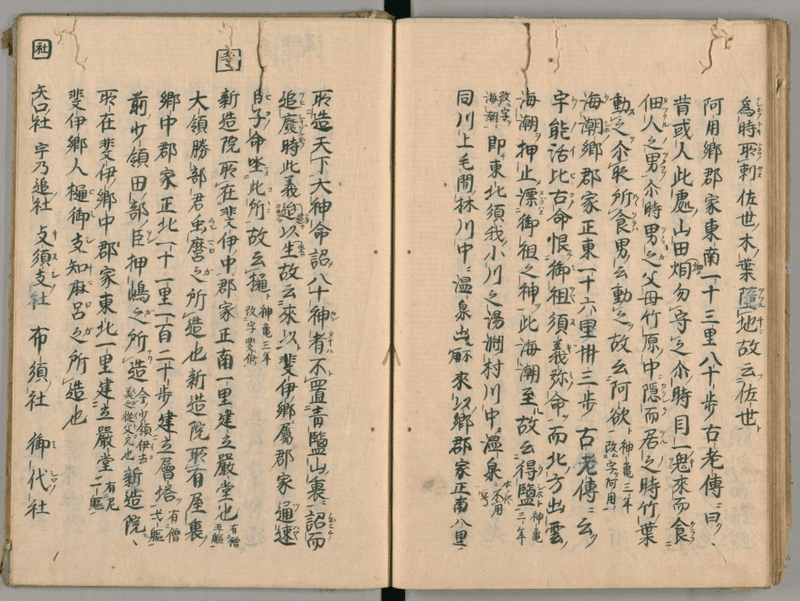 為時所刺佐世木葉墮地故云佐世
阿用郷郡家東南一十三里八十歩古老傳曰
昔或人此處山田烱而守之尒時目一鬼來而食
佃人之男尒時男之父母竹原中隱而居之時竹葉
動之尒時所食男云動之故云阿欲神亀三年改字阿用
海潮郷郡家正東一十六里卅三歩古老傳云
宇能活比古命恨御祖須義弥命而北方出雲
海潮押止漂御祖之神此海潮至故云得鹽神亀三年
改字海潮即東北須我小川之湯渕村川中温泉不用号
同川上毛間林川中温泉出
來以郷郡家正南八里
所造天下大神命詔八十神者不置青鹽山裏詔而
追廢時此義追以坐故云來以斐伊郷屬郡家通速
日子命坐此所故云樋神亀三年改字斐伊
寺
新造院所在斐伊中郡家正南一里建立嚴堂也有僧五軀
大領勝部君虫麿之所造也新造院所有屋裏
郷中郡家正北一十一里一百二十歩建立層塔有僧弌軀
前少領田部臣押嶋之所造今少領伊去美之從父兄也新造院
所在斐伊郷中郡家東北一里建立嚴堂有尼二軀
斐伊郷人樋御支知麻呂之所造也
社
矢口社 宇乃追社 支須支社 布須社 御代社